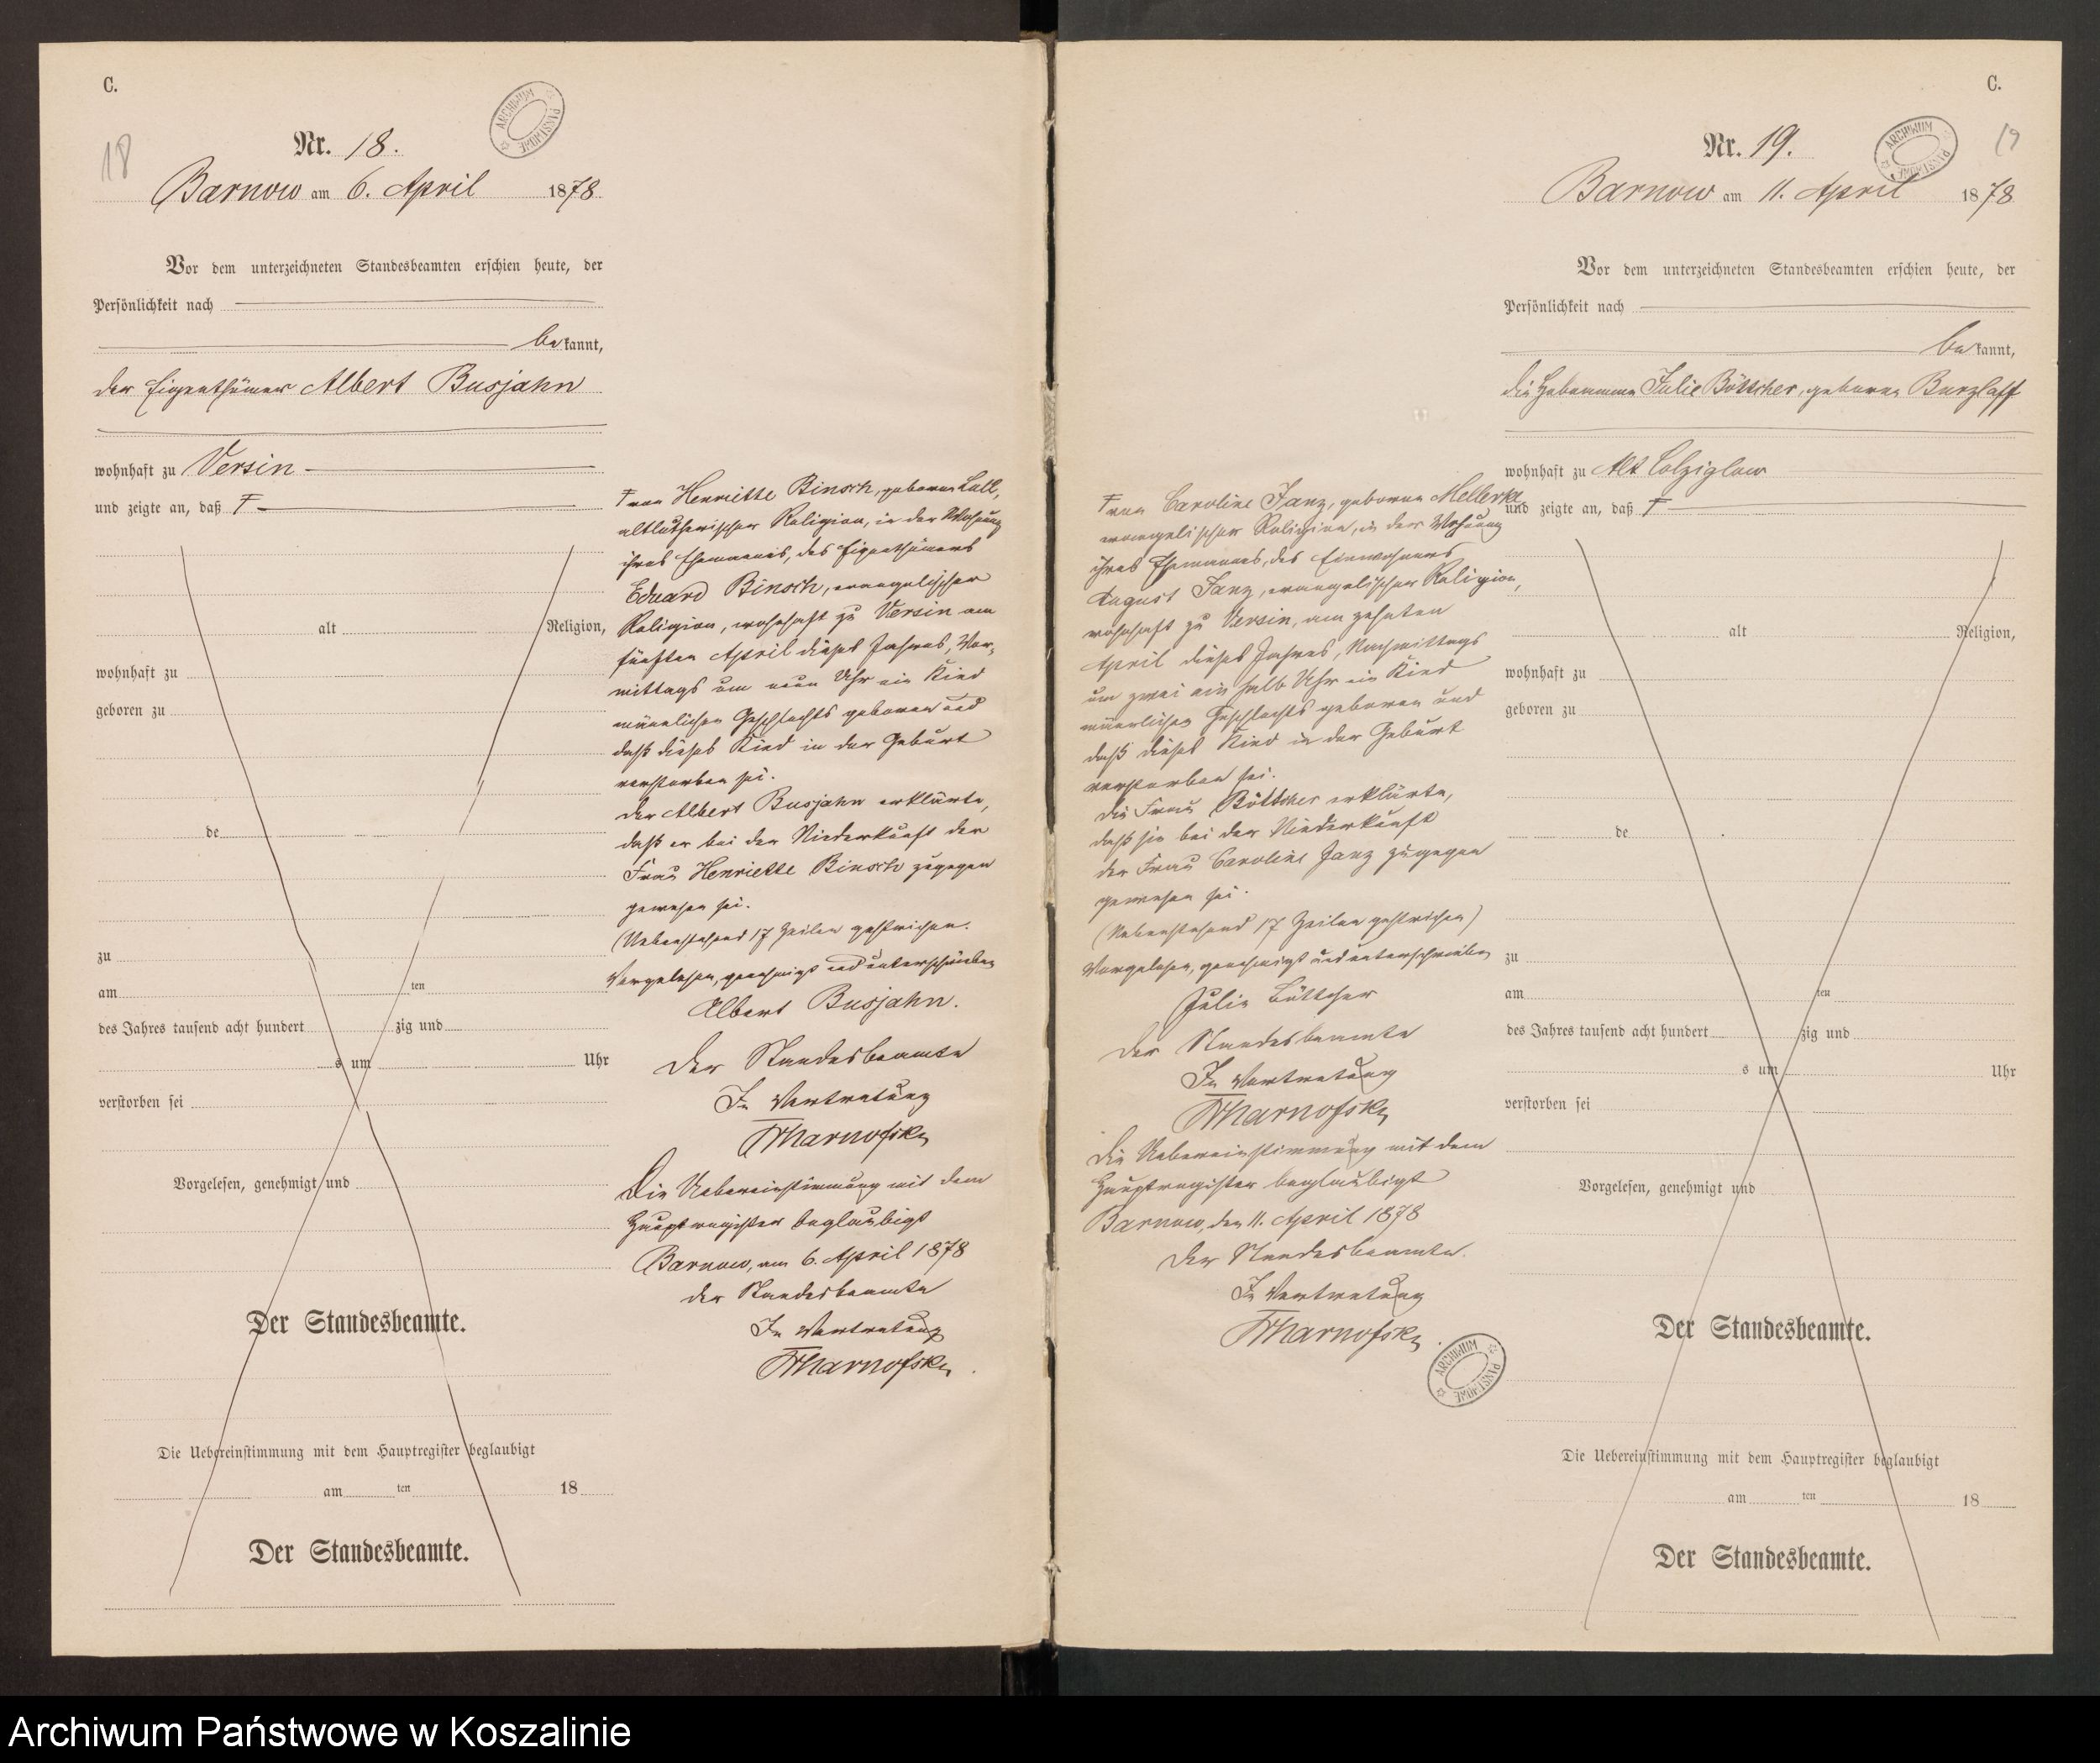 C.
18
Nr. 18.
ARCHIWUM PAŃSTWOWE
Barnow am 6. April 1878
Vor dem unterzeichneten Standesbeamten erschien heute, der
Persönlichkeit nach
bekannt,
der Eigenthümer Albert Busjahn
wohnhaft zu Versin
und zeigte an, daß F
alt Religion,
wohnhaft zu
geboren zu
de
zu
am ten
des Jahres tausend acht hundert zig und
s um Uhr
verstorben sei
Vorgelesen, genehmigt und
Der Standesbeamte.
Die Uebereinstimmung mit dem Hauptregister beglaubigt
am ten 18
Der Standesbeamte.
Frau Henriette Binsch, geborene Lull,
altlutherischer Religion, in der Wohnung
ihres Ehemannes, des Eigenthümers
Eduard Binsch, evangelischer
Religion, wohnhaft zu Versin am
fünften April dieses Jahres, Vor-
mittags um neun Uhr ein Kind
männlichen Geschlechts geboren und
daß dieses Kind in der Geburt
verstorben sei.
Der Albert Busjahn erklärte,
daß er bei der Niederkunft der
Frau Henriette Binsch zugegen
gewesen sei.
(Nebenstehend 17 Zeilen gestrichen.
Vorgelesen, genehmigt und unterschrieben
Albert Busjahn.
Der Standesbeamte
In Vertretung
Die Uebereinstimmung mit dem
Hauptregister beglaubigt
Barnow, am 6. April 1878
Der Standesbeamte
In Vertretung
C.
19
Nr. 19.
ARCHIWUM PAŃSTWOWE
Barnow am 11. April 1878
Vor dem unterzeichneten Standesbeamten erschien heute, der
Persönlichkeit nach
bekannt,
die Hebamme Julie Böttcher, geborene Burzlaff
wohnhaft zu Alt Colziglow
und zeigte an, daß F
alt Religion,
wohnhaft zu
geboren zu
de
zu
am ten
des Jahres tausend acht hundert zig und
s um Uhr
verstorben sei
Vorgelesen, genehmigt und
Der Standesbeamte.
Die Uebereinstimmung mit dem Hauptregister beglaubigt
am ten 18
Der Standesbeamte.
Frau Caroline Janz, geborene Mellerke
evangelischer Religion, in der Wohnung
ihres Ehemannes, des Einwohners
August Janz, evangelischer Religion,
wohnhaft zu Versin, am zehnten
April dieses Jahres, Nachmittags
um zwei ein halb Uhr ein Kind
männlichen Geschlechts geboren und
daß dieses Kind in der Geburt
verstorben sei.
Die Frau Böttcher erklärte,
daß sie bei der Niederkunft
der Frau Caroline Janz zugegen
gewesen sei.
(Nebenstehend 17 Zeilen gestrichen)
Vorgelesen, genehmigt und unterschrieben
Julie Böttcher
Der Standesbeamte
In Vertretung
Die Uebereinstimmung mit dem
Hauptregister beglaubigt
Barnow, den 11. April 1878
Der Standesbeamte.
In Vertretung
ARCHIWUM PAŃSTWOWE
Archiwum Państwowe w Koszalinie